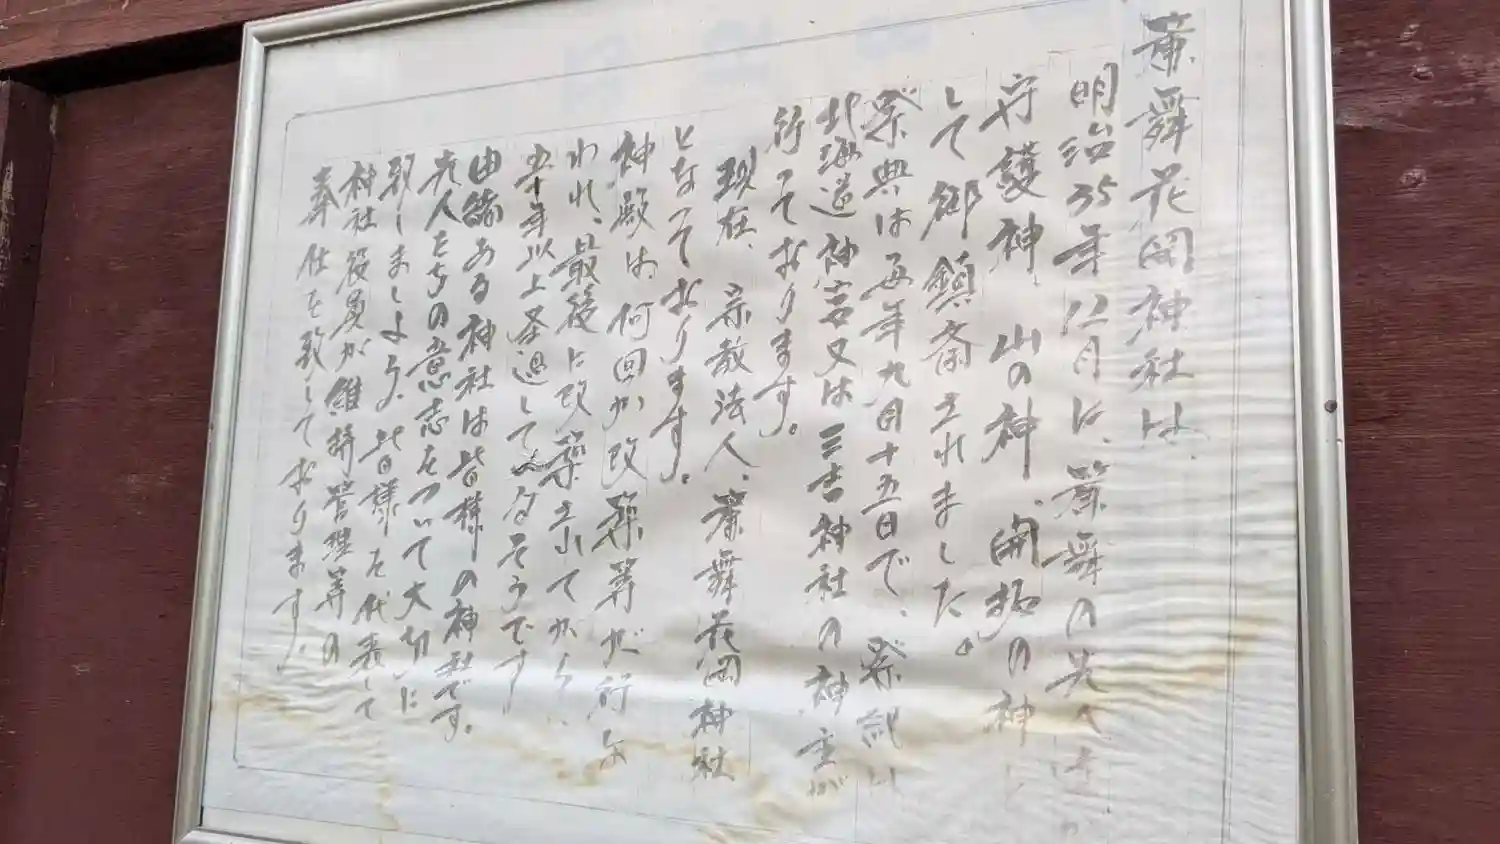 簾舞花岡神社は、
明治35年12月に、簾舞の先人達が
守護神、山の神、開拓の神と
して御鎮斎されました。
祭典は毎年九月十五日で、祭祀は
北海道神宮又は三吉神社の神主が
行っております。
現在、宗教法人、簾舞花岡神社
となっております。
神殿は何回か改築等が行な
われ、最後に改築されてから、
五十年以上経過しているそうです
由緒ある神社は皆様の神社です。
先人たちの意志をついで大切に
致しましょう。皆様を代表して
神社役員が維持管理等の
奉仕を致しております。